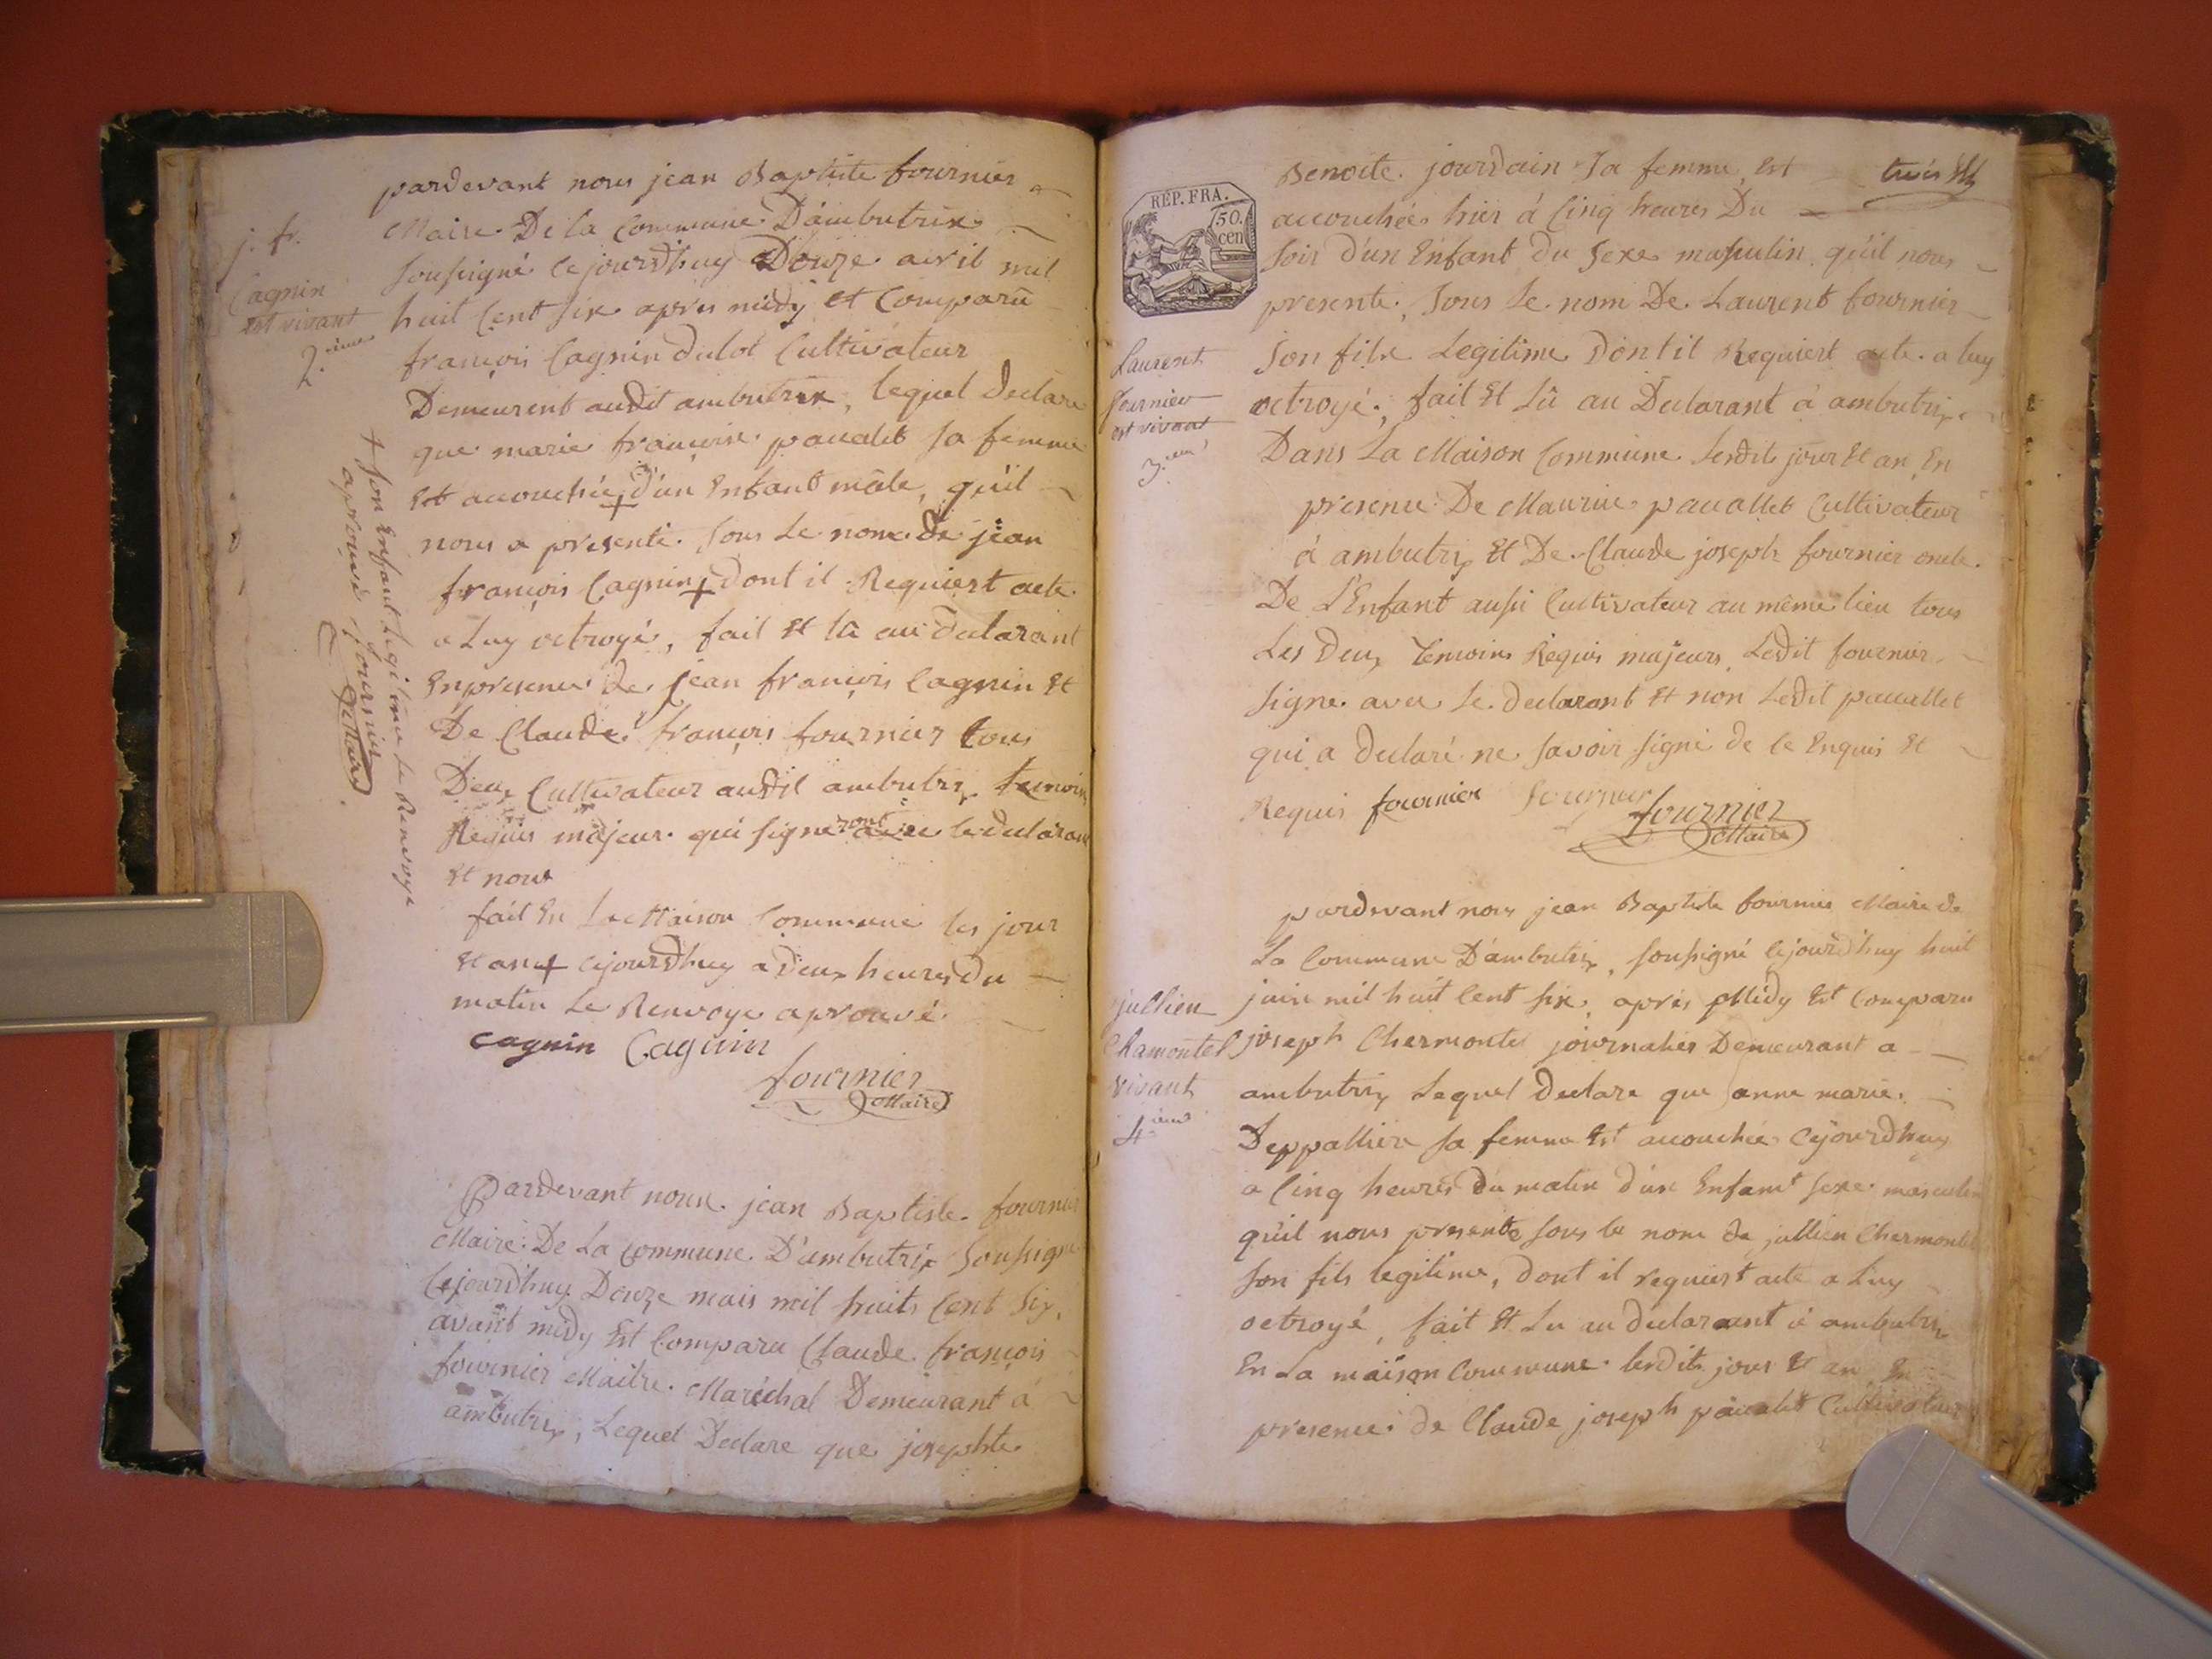 pardevant nous jean Baptiste fournier
Maire De la Commune D'ambutrix
soussigné cejourdhuy Douze avril mil
huit Cent six apres midy et Comparu
françois Cagnin dulot Cultivateur
Demeurent audit ambutrix, lequel declare
que marie françoise pavalet sa femme
Est accouchée + d'un Enfant mâle, qu'il
nous a presenté sous le nom de jean
françois Cagnin + dont il Requiert acte
a Luy octroyé, fait Et lû au declarant
En presence de jean françois Cagnin Et
De Claude françois fournier tous
Deux Cultivateur audit ambutrix temoins
Requis majeur qui signeront avec le declarant
Et nous
fait En La Maison Commune les jour
Et an + cejourdhuy a deux heures du
matin Le Renvoye aprouvé
cagnin Cagnin
fournier
Maire
j. f.
Cagnin
est vivant
2.ieme
+ son Enfant Legitime Le Renvoye
aprouvé fournier
Maire
Pardevant nous jean Baptiste fournier
Maire De La Commune D'ambutrix Soussigné
Cejourd'huy Douze mais mil huits Cent Six,
avant midy Est Comparu Claude françois
fournier Maitre Maréchal Demeurant à
ambutrix, Lequel Declare que josephte
trois
RÉP. FRA.
50.
cen
Benoite jourdain Sa femme, Est
accouchée hier à Cinq heures Du
soir d'un Enfant du Sexe masculin qu'il nous
presente, Sous Le nom De Laurent fournier
Son fils Legitime Dont il Requiert acte a luy
octroyé, fait Et Lû au Declarant à ambutrix
Dans La Maison Commune Lesdits jour Et an En
presence De Maurice pavallet Cultivateur
à ambutrix Et De Claude joseph fournier oncle
De L'Enfant aussi Cultivateur au même lieu tous
Les deux temoins Requis majeurs, Ledit fournier
signe avec le declarant Et non Ledit pavallet
qui a declaré ne savoir signé de ce Enquis Et
Requis fournier fournier
fournier
Maire
Laurent
fournier
est vivant
3.eme
pardevant nous jean Baptiste fournier Maire de
La Commune D'ambutrix, soussigné cejourd'huy huit
juin mil huit Cent six, après Midy Est Comparu
joseph Chermontel journalier Demeurant a
ambutrix Lequel declare que anne marie
Deppallier sa femme Est accouchée Cejourdhuy
a Cinq heures du matin d'un Enfant sexe masculin
qu'il nous presente sous le nom de jullien Chermontel
son fils legitime, dont il requiert acte a Luy
octroyé, fait Et Lu au declarant à ambutrix
En La maison Commune lesdits jour Et an En
presence de Claude joseph pavalet Cultivateur
jullien
Chamontel
vivant
4.ieme